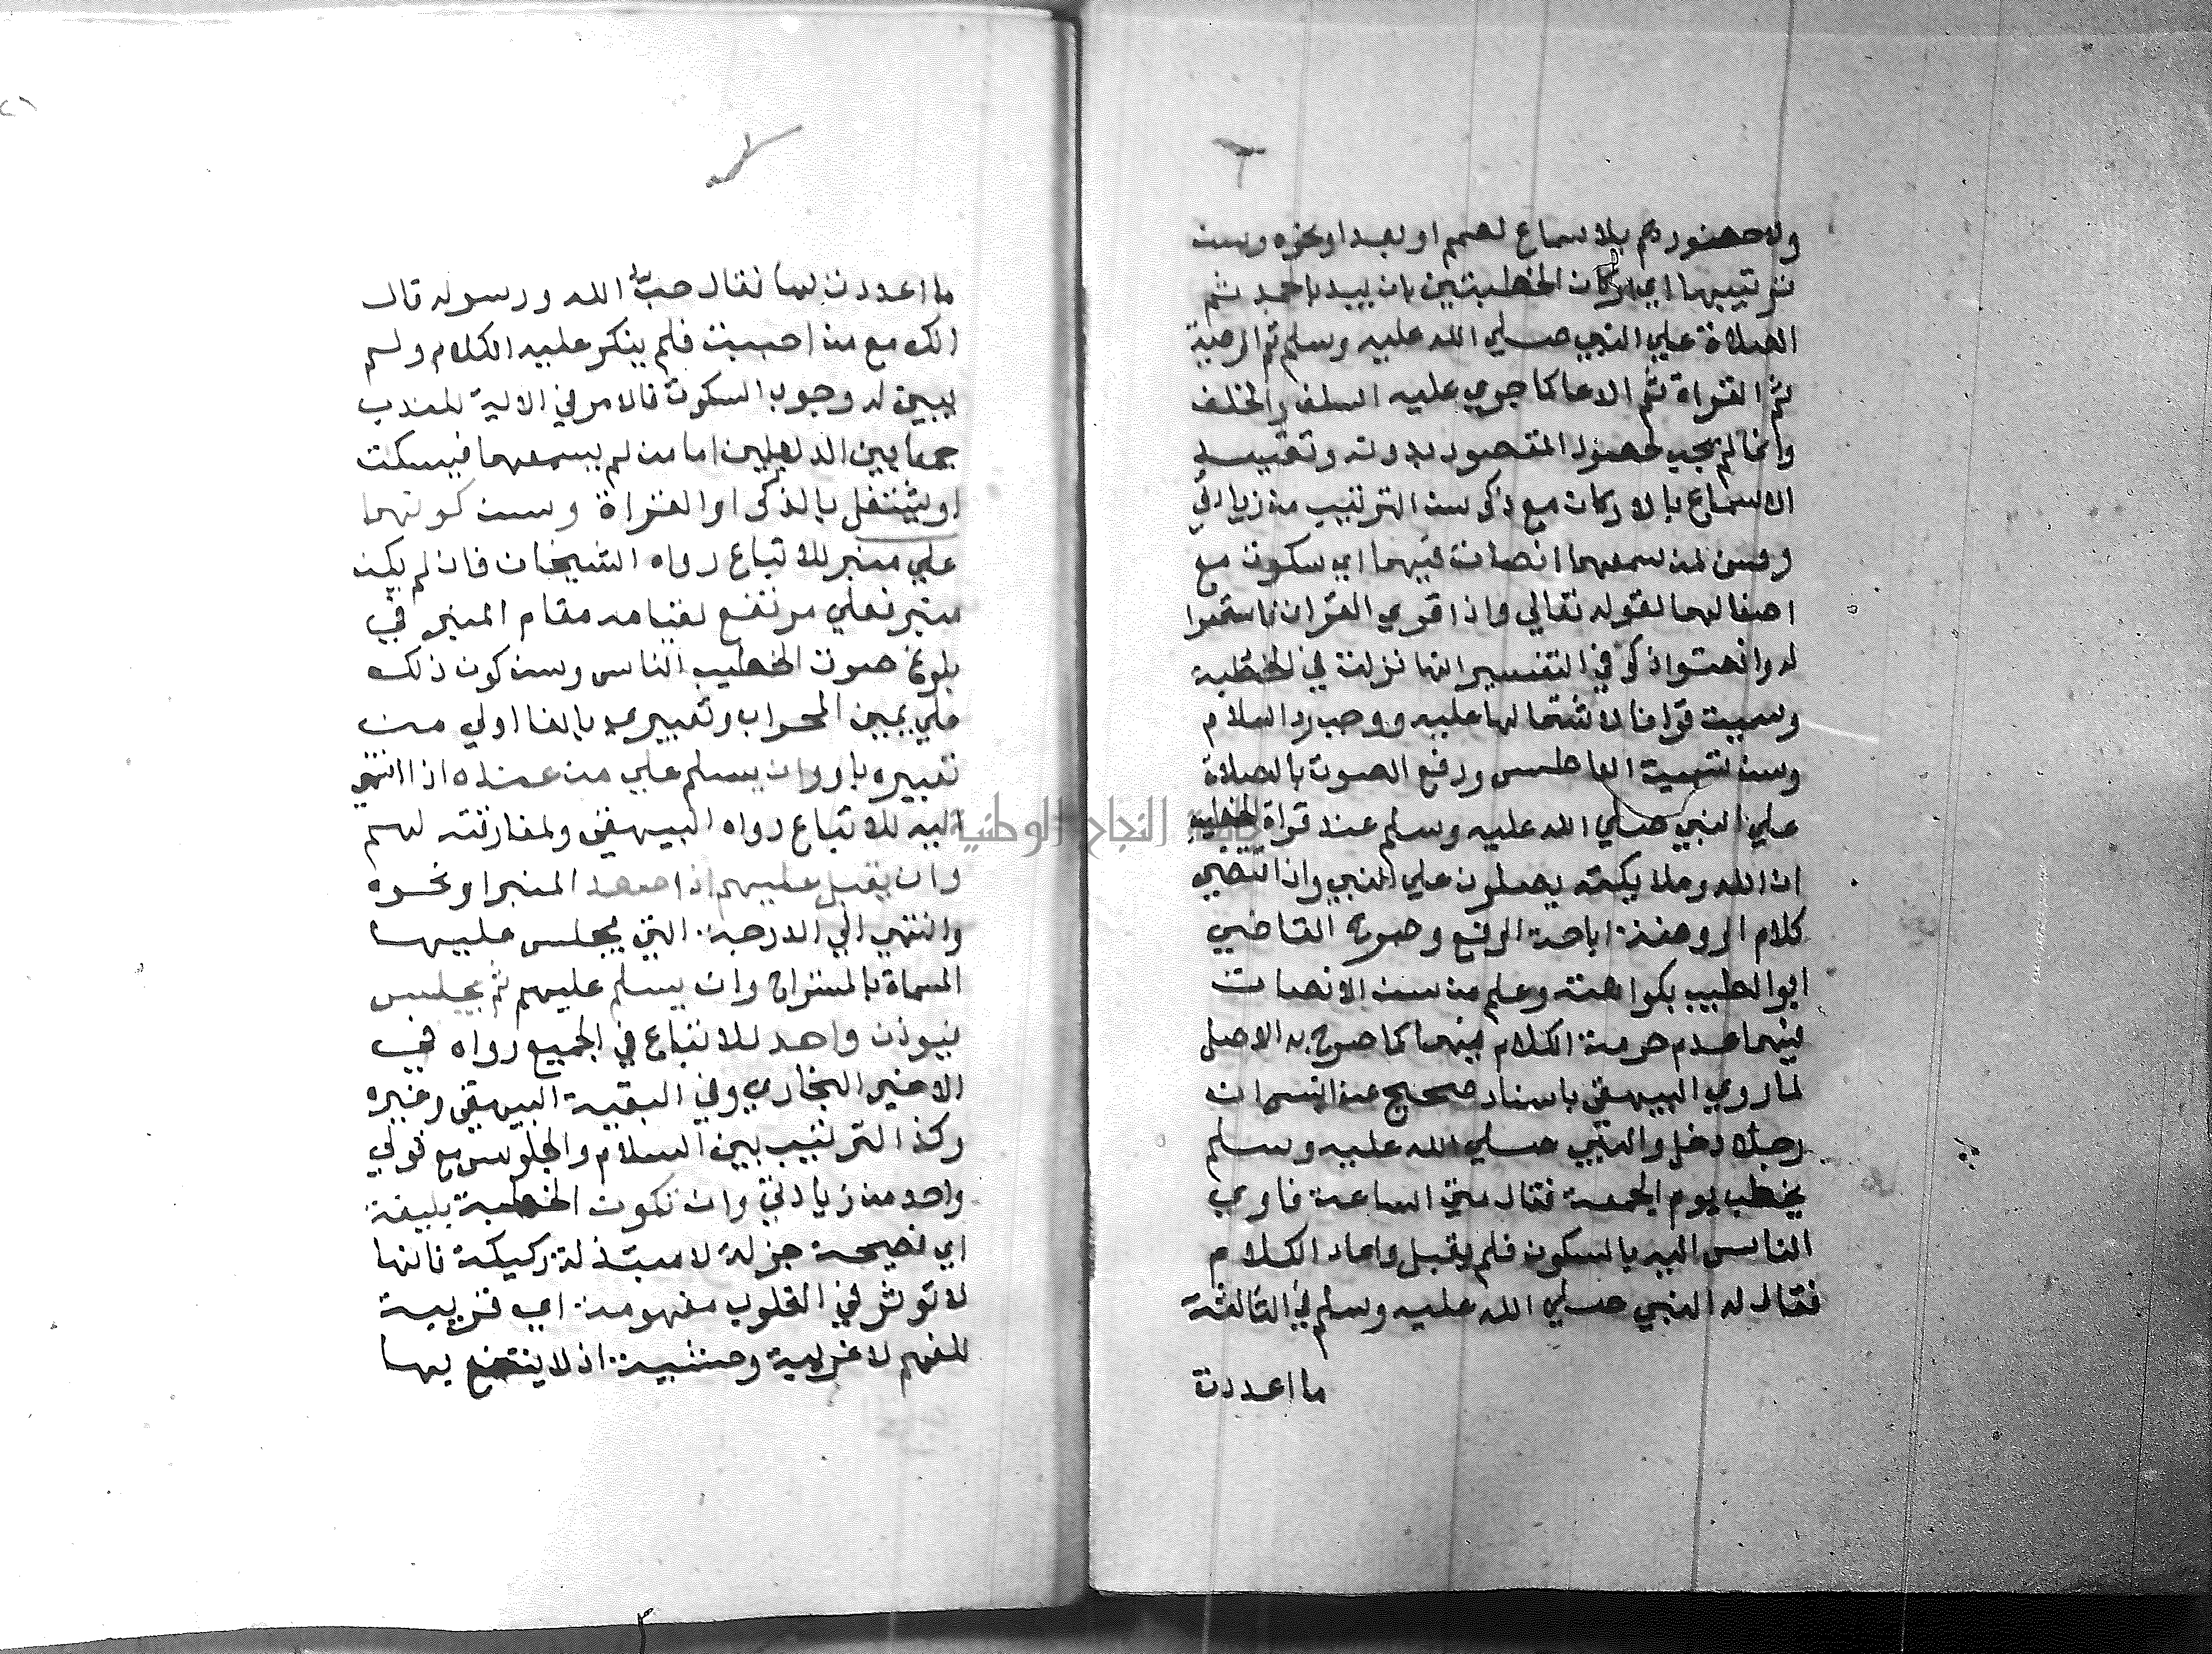 ولا حضورهم بلا سماع لهم او بعد او نحوه وسن
ترتيبها اي اركان الخطبتين بان يبدا بالحمد ثم
الصلاة علي النبي صلي الله عليه وسلم ثم الوصية
ثم القراة ثم الدعا كما جري عليه السلف والخلف
وانما لم يجب لحصول المقصود بدونه وتقييد
الاسماع بالاركان مع ذكر سن الترتيب من زيادتي
وسن لمن سمعهما انصات فيهما اي سكوت مع
اصغا لهما لقوله تعالي واذا قري القران فاستمعوا
له وانصتوا ذكر في التفسير انها نزلت في الخطبة
وسميت قرانا لاشتمالها عليه ووجب رد السلام
وسن تشميت العاطس ورفع الصوت بالصلاة
علي النبي صلي الله عليه وسلم عند قراة الخطيب
ان الله وملايكته يصلون علي النبي وان اقتضي
كلام الروضة اباحة الرفع وصرح القاضي
ابو الطيب بكراهته وعلم من سن الانصات
فيهما عدم حرمة الكلام فيهما كما صرح به الاصل
لما روي البيهقي باسناد صحيح عن انس ان
رجلا دخل والنبي صلي الله عليه وسلم
يخطب يوم الجمعة فقال متي الساعة فاومي
الناس اليه بالسكوت فلم يقبل واعاد الكلام
فقال له النبي صلي الله عليه وسلم في الثالثة
ما اعددت
ما اعددت لها فقال حب الله ورسوله قال
انك مع من احببت فلم ينكر عليه الكلام ولم
يبين له وجوب السكوت فالامر في الاية للندب
جمعا بين الدليلين اما من لم يسمعهما فيسكت
او يشتغل بالذكر او القراة وسن كونهما
علي منبر للاتباع رواه الشيخان فان لم يكن
منبر فعلي مرتفع لقيامه مقام المنبر في
بلوغ صوت الخطيب الناس وسن كون ذلك
علي يمين المحراب وتعبيري بالفا اولي من
تعبيره باو وان يسلم علي من عنده اذا انتهي
اليه للاتباع رواه البيهقي ولمفارقته لهم
وان يقبل عليهم اذا صعد المنبر او نحوه
وانتهي الي الدرجة التي يجلس عليها
المسماة بالمستراح وان يسلم عليهم ثم يجلس
فيوذن واحد للاتباع في الجميع رواه في
الاخير البخاري وفي البقية البيهقي وغيره
وذكر الترتيب بين السلام والجلوس مع قولي
واحد من زيادتي وان تكون الخطبة بليغة
اي فصيحة جزلة لا مبتذلة ركيكة فانها
لا توثر في القلوب مفهومة اي قريبة
للفهم لا غريبة وحشية اذ لا ينتفع بها
جامعة النجاح الوطنية